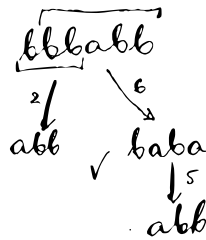 bbbabb
2 6
abb baba
5
abb